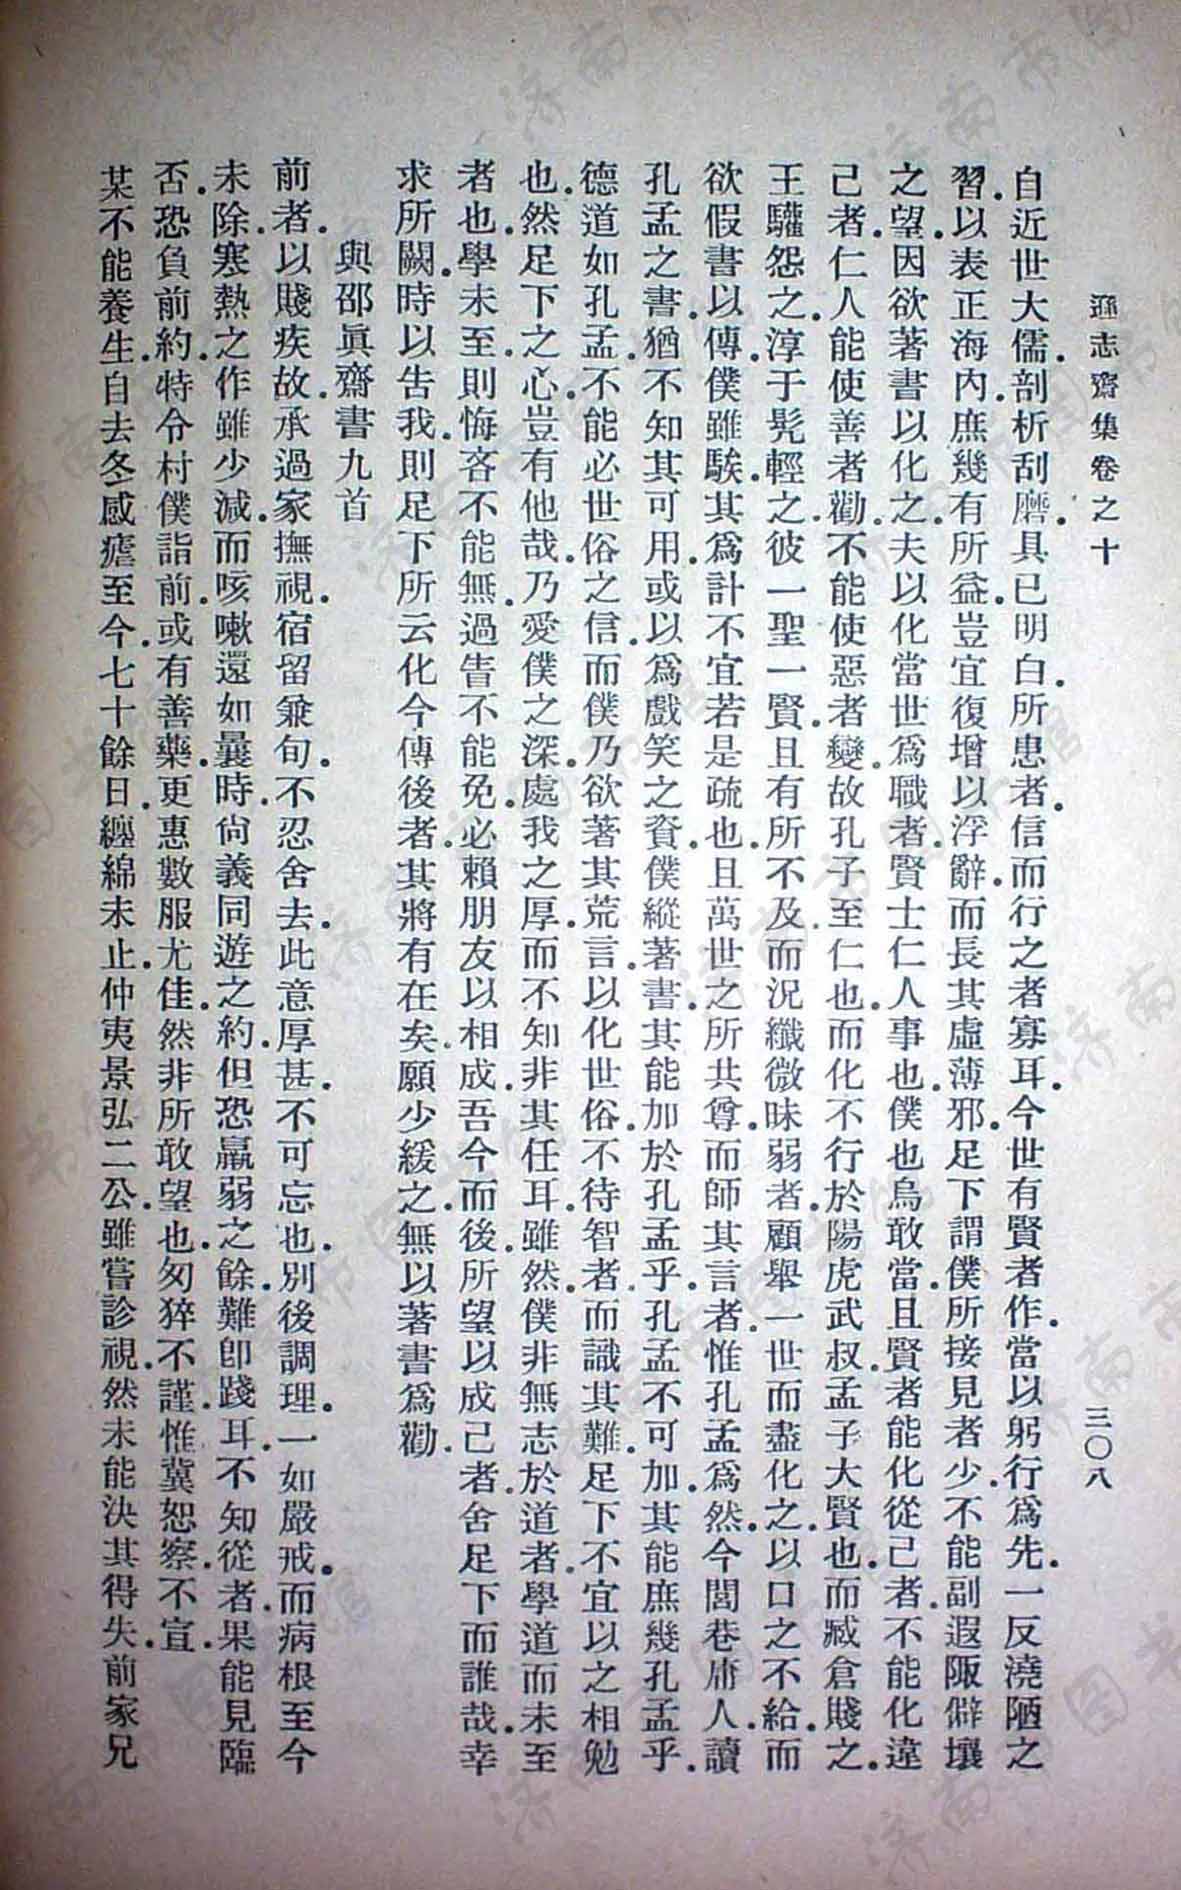 遜志齋集卷之十
三〇八
自近世大儒．剖析刮磨．具已明白．所患者．信而行之者寡耳．今世有賢者作．當以躬行爲先．一反澆陋之
習．以表正海內．庶幾有所益．豈宜復增以浮辭．而長其虛薄邪．足下謂僕所接見者少．不能副遐陬僻壤
之望．因欲著書以化之．夫以化當世爲職者．賢士仁人事也．僕也烏敢當．且賢者能化從己者．不能化違
己者．仁人能使善者勸．不能使惡者變．故孔子至仁也．而化不行於陽虎武叔．孟子大賢也．而臧倉賤之．
王驩怨之．淳于髠輕之．彼一聖一賢．且有所不及．而況纖微昧弱者．顧舉一世而盡化之．以口之不給．而
欲假書以傳．僕雖騃．其爲計不宜若是疏也．且萬世之所共尊．而師其言者．惟孔孟爲然．今閭巷庸人．讀
孔孟之書．猶不知其可用．或以爲戲笑之資．僕縱著書．其能加於孔孟乎．孔孟不可加．其能庶幾孔孟乎．
德道如孔孟．不能必世俗之信．而僕乃欲著其荒言．以化世俗．不待智者．而識其難．足下不宜以之相勉
也．然足下之心．豈有他哉．乃愛僕之深．處我之厚．而不知非其任耳．雖然．僕非無志於道者．學道而未至
者也．學未至．則悔吝不能無．過眚不能免．必賴朋友以相成．吾今而後．所望以成己者．舍足下而誰哉．幸
求所闕．時以告我．則足下所云化今傳後者．其將有在矣．願少緩之．無以著書爲勸．
與邵眞齋書九首
前者．以賤疾故．承過家撫視．宿留兼旬．不忍舍去．此意厚甚．不可忘也．別後調理．一如嚴戒．而病根至今
未除．寒熱之作雖少減．而咳嗽還如曩時．尙義同遊之約．但恐羸弱之餘．難卽踐耳．不知從者．果能見臨
否．恐負前約．特令村僕詣前．或有善藥．更惠數服尤佳．然非所敢望也．匆猝不謹．惟冀恕察．不宣．
某不能養生．自去冬感瘧至今．七十餘日．纏綿未止．仲夷景弘二公．雖嘗診視．然未能決其得失．前家兄